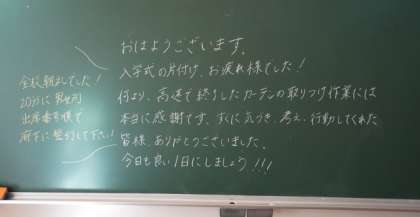 おはようございます。
入学式の片付け、お疲れ様でした!
何より、高速で終了したカーテンの取りつけ作業には
本当に感謝です。すぐに気づき、考え、行動してくれた
皆様、ありがとうございました。
今日も良い1日にしましょう!!!
全校朝礼でした!
20分に男女別
出席番号順で
廊下に整列して下さい!